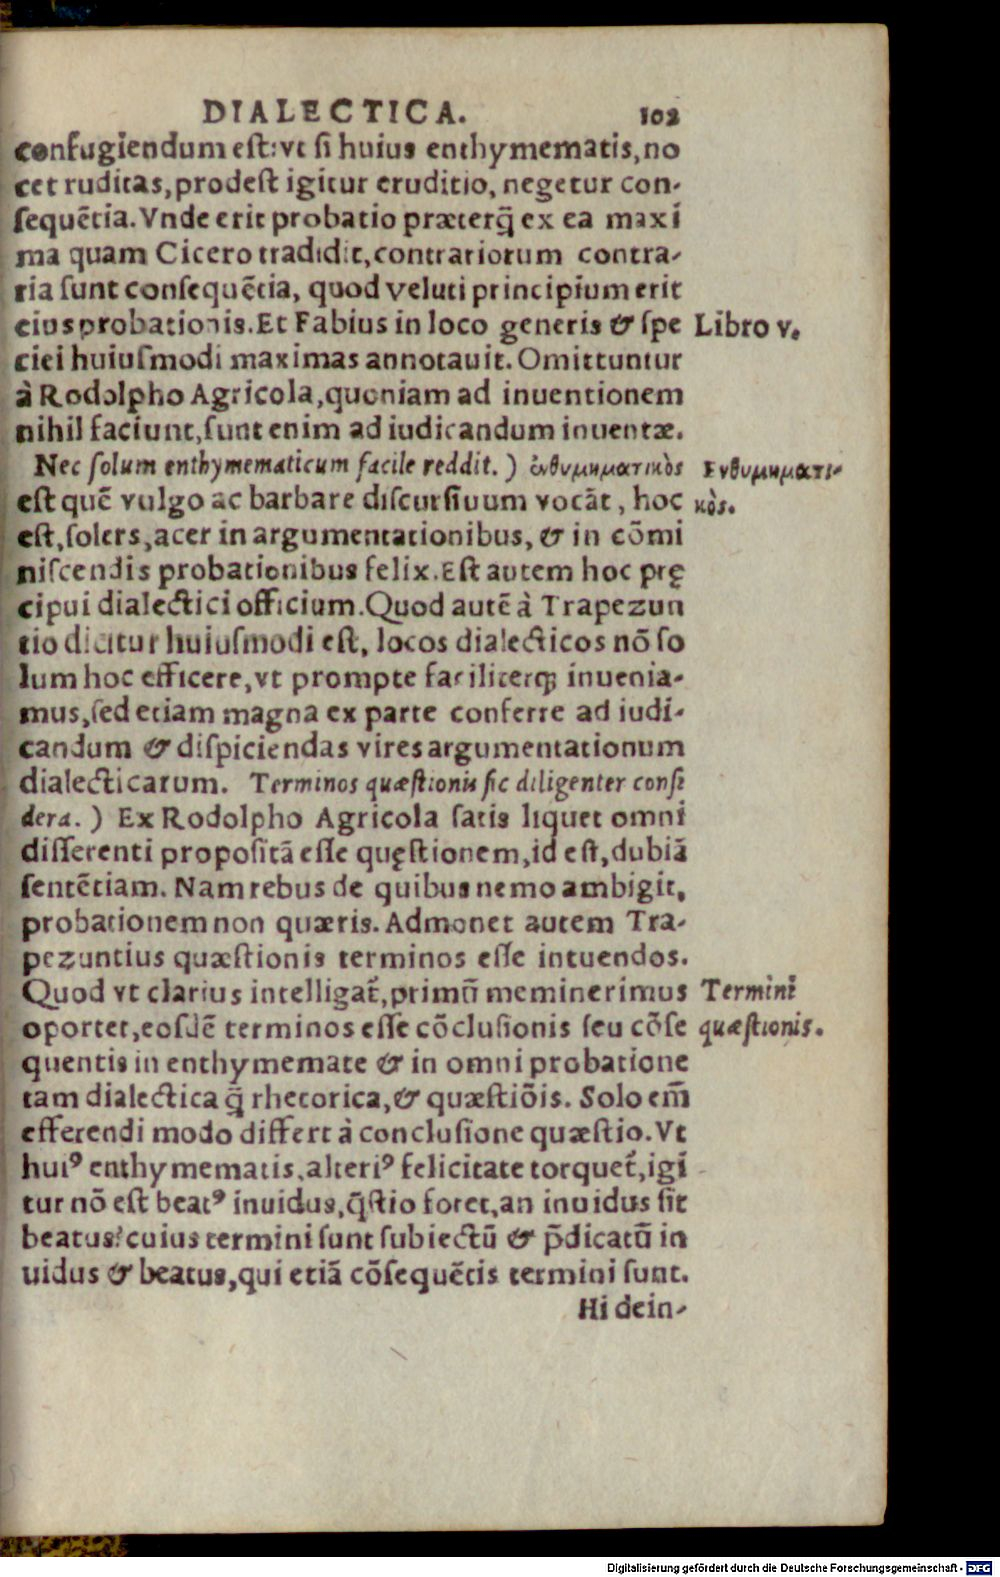 DIALECTICA. 102
confugiendum est: vt si huius enthymematis, no
cet ruditas, prodest igitur eruditio, negetur con-
sequẽtia. Vnde erit probatio præterq̃ ex ea maxi
ma quam Cicero tradidit, contrariorum contra-
ria sunt consequẽtia, quod veluti principium erit
eius probationis. Et Fabius in loco generis & spe
Libro v.
ciei huiusmodi maximas annotauit. Omittuntur
à Rodolpho Agricola, quoniam ad inuentionem
nihil faciunt, sunt enim ad iudicandum inuentæ.
Nec solum enthymematicum facile reddit. ) ἐνθυμηματικὸς
Ενθυμηματι-
est quẽ vulgo ac barbare discursiuum vocãt, hoc
κὸς.
est, solers, acer in argumentationibus, & in cõmi
niscendis probationibus felix. Est autem hoc prę
cipui dialectici officium. Quod autẽ à Trapezun
tio dicitur huiusmodi est, locos dialecticos nõ so
lum hoc efficere, vt prompte faciliterq́; inuenia-
mus, sed etiam magna ex parte conferre ad iudi-
candum & dispiciendas vires argumentationum
dialecticarum. Terminos quæstionis sic diligenter consi
dera. ) Ex Rodolpho Agricola satis liquet omni
disserenti propositã esse quęstionem, id est, dubiã
sentẽtiam. Nam rebus de quibus nemo ambigit,
probationem non quæris. Admonet autem Tra-
pezuntius quæstionis terminos esse intuendos.
Quod vt clarius intelligat̃, primũ meminerimus
Termini
oportet, eosdẽ terminos esse cõclusionis seu cõse
quæstionis.
quentis in enthymemate & in omni probatione
tam dialectica q̃ rhetorica, & quæstiõis. Solo em̃
efferendi modo differt à conclusione quæstio. Vt
huiꝰ enthymematis, alteriꝰ felicitate torquet̃, igi
tur nõ est beatꝰ inuidus, q̃stio foret, an inuidus sit
beatus? cuius termini sunt subiectũ & p̃dicatũ in
uidus & beatus, qui etiã cõsequẽtis termini sunt.
Hi dein-
Digitalisierung gefördert durch die Deutsche Forschungsgemeinschaft - DFG